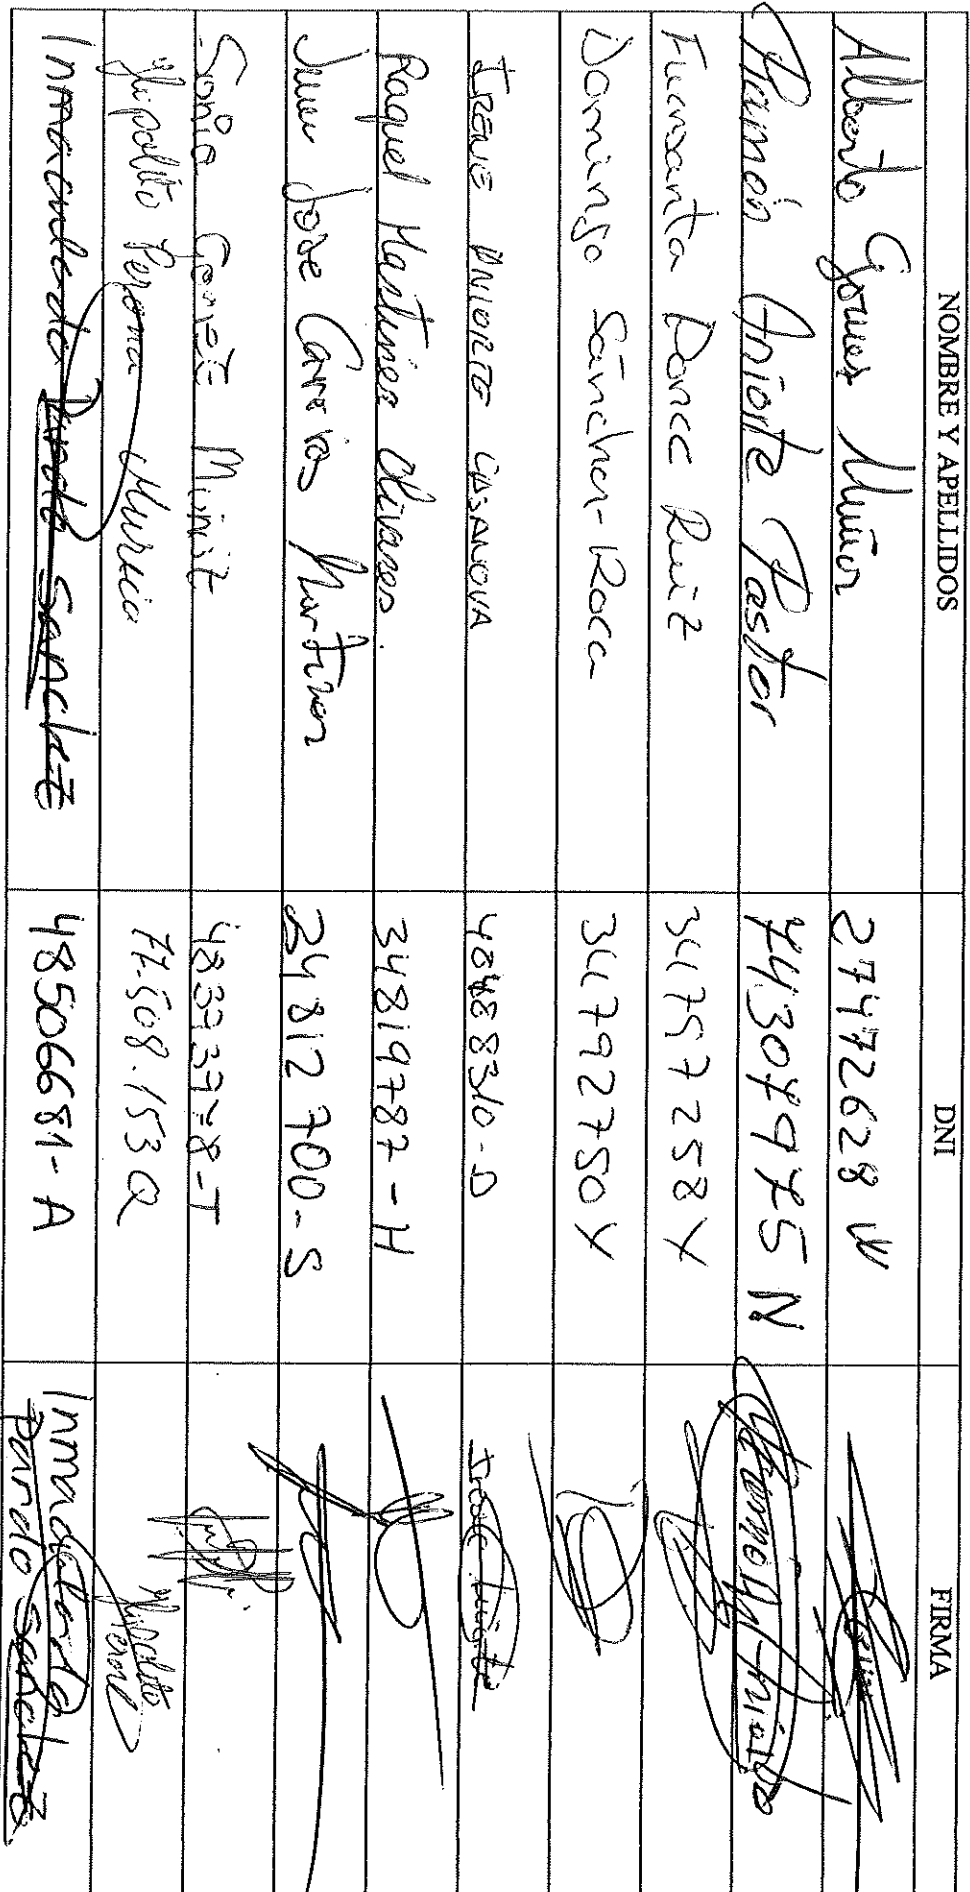 NOMBRE Y APELLIDOS DNI FIRMA
Alberto Gomez Muñoz 27472628 W
Ramón Aniorte Pastor 74304975 N Ramón Aniorte
Fuensanta Ponce Ruiz 34757258 X
Domingo Sánchez-Roca 34792750 Y
IRENE ANIORTE CASANOVA 48488310-D Irene Aniorte
Raquel Martínez Olivares. 34819787-H
Juan José Martínez 24812700-S
Sonia 48393978-T
Hipolito Perona Murcia 77.508.153 Q Hipolito Perona
Inmaculada Pardo Sanchez 48506681-A Inmaculada
Pardo Sanchez